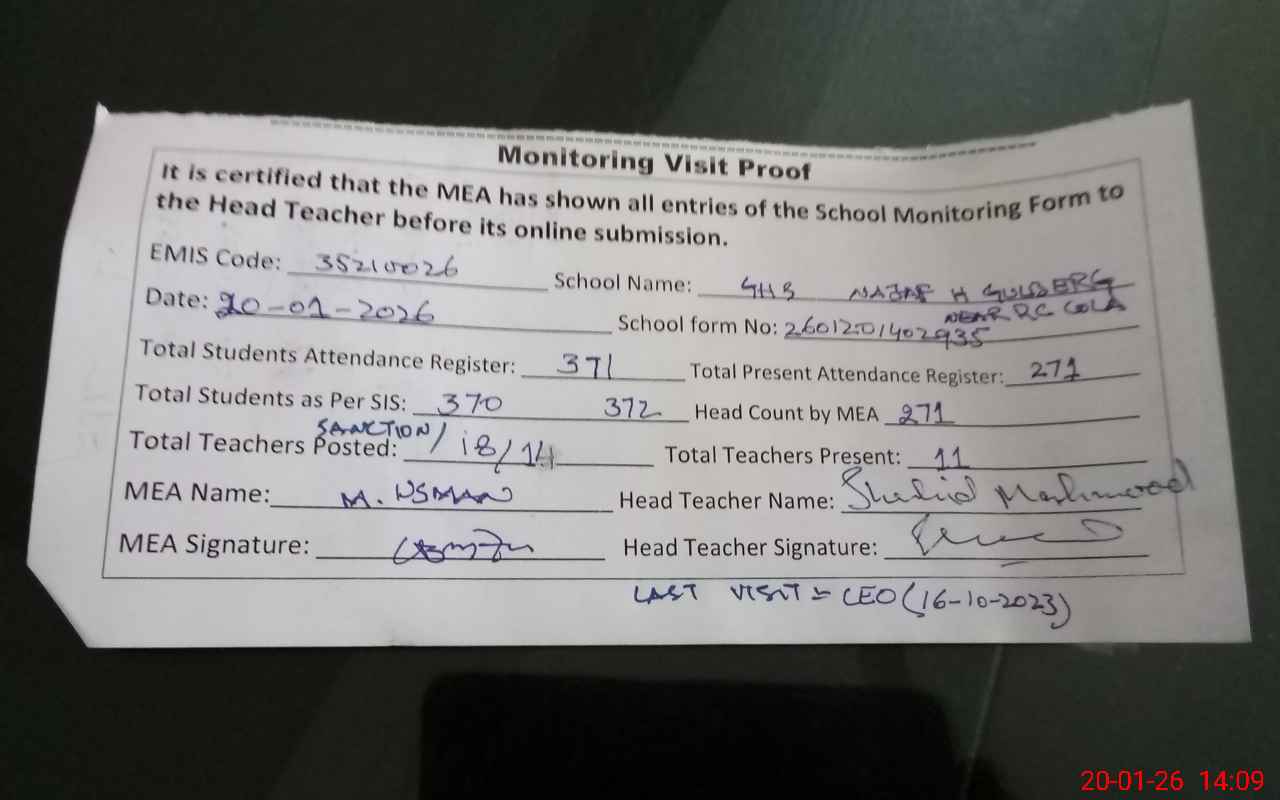 Monitoring Visit Proof
It is certified that the MEA has shown all entries of the School Monitoring Form to
the Head Teacher before its online submission.
EMIS Code: 35210026 School Name: GHS NAJAF H GULBERG
NEAR RC COLA
Date: 20-01-2026 School form No: 260120101402935
Total Students Attendance Register: 371 Total Present Attendance Register: 271
Total Students as Per SIS: 370 372 Head Count by MEA 271
SANCTION/
Total Teachers Posted: 18/14 Total Teachers Present: 11
MEA Name: M. USMAN Head Teacher Name: Shahid Mahmood
MEA Signature: Head Teacher Signature:
LAST VISIT = CEO (16-10-2023)
20-01-26 14:09